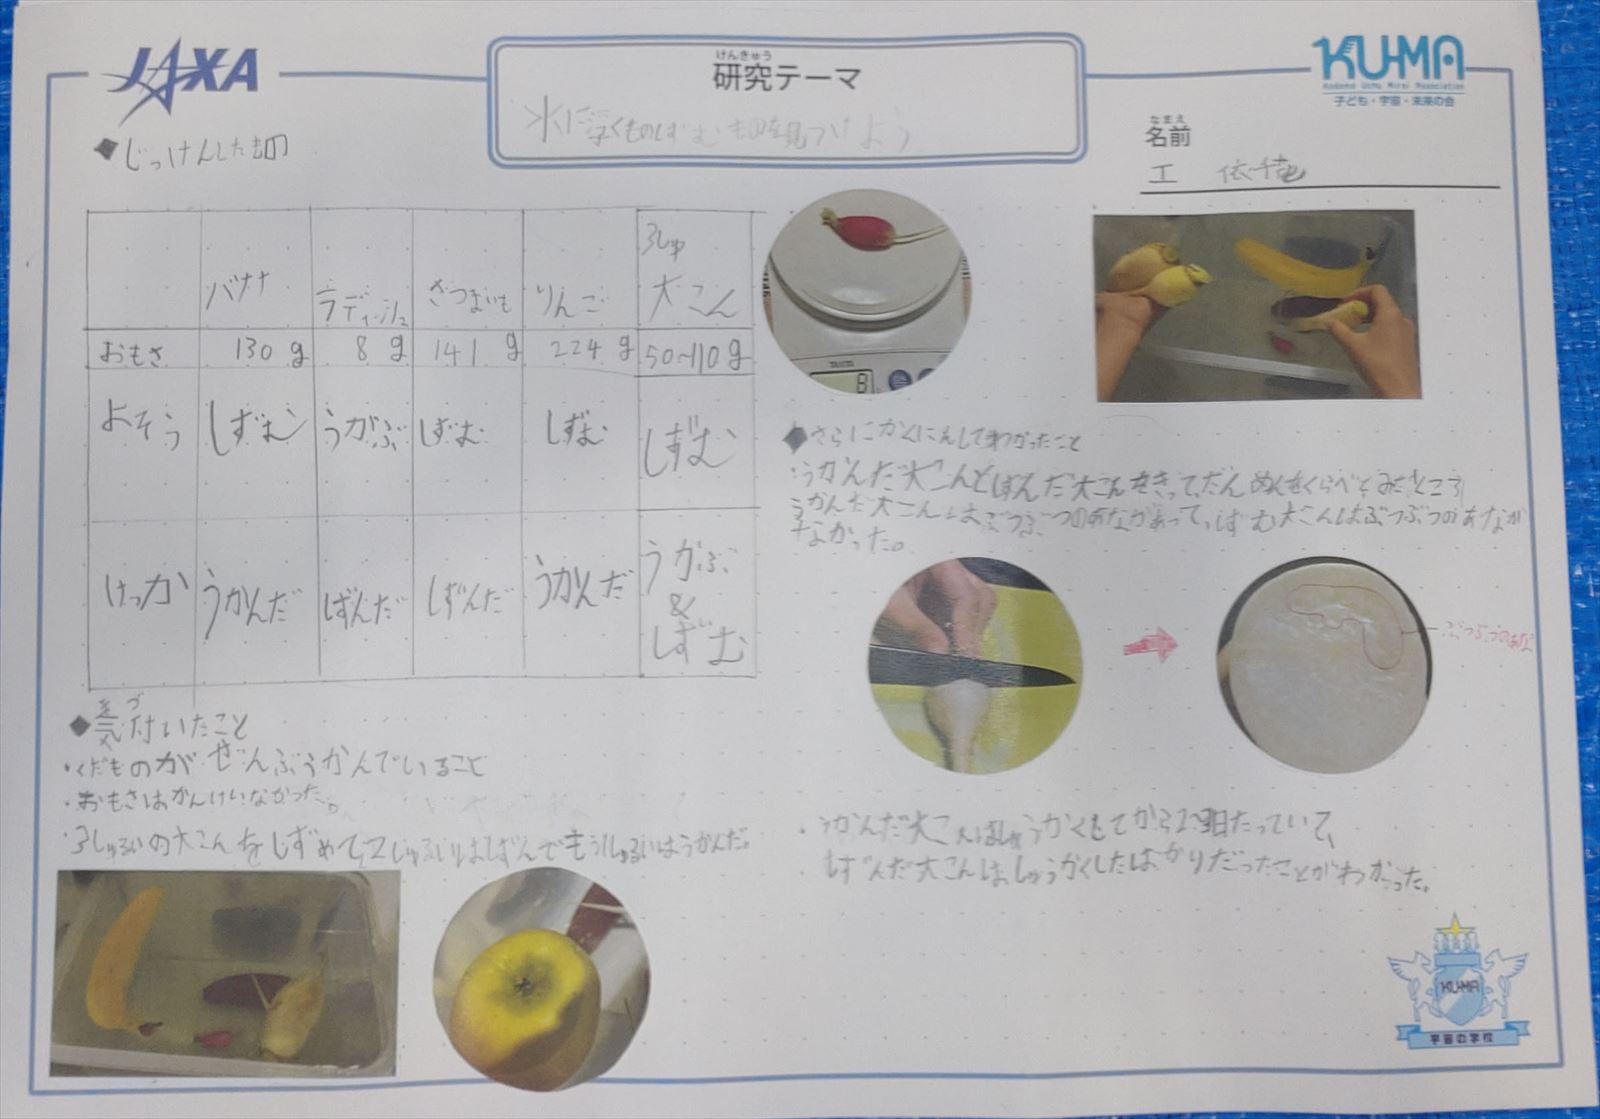 JAXA
けんきゅう
研究テーマ
水に浮くものしずむものを見つけよう
KU-MA
Kodomo Uchu Mirai Association
子ども・宇宙・未来の会
なまえ
名前
工 依千花
◆じっけんしたもの
バナナ ラディッシュ さつまいも りんご 3しゅ大こん
おもさ 130g 8g 141g 224g 50~110g
よそう しずむ うかぶ しずむ しずむ しずむ
けっか うかんだ しずんだ しずんだ うかんだ うかぶ&しずむ
TANITA
8
◆気付いたこと
きづ
・くだものがぜんぶうかんでいること
・おもさはかんけいなかった。
・3しゅるいの大こんをしずめて、2しゅるいはしずんでもう1しゅるいはうかんだ。
◆さらにかくにんしてわかったこと
・うかんだ大こんとしずんだ大こんをきって、だんめんをくらべてみたところ
うかんだ大こんはぶつぶつのあながあって、しずむ大こんはぶつぶつのあなが
なかった。
ぶつぶつのあな
・うかんだ大こんはしゅうかくしてから2週日たっていて、
しずんだ大こんはしゅうかくしたばかりだったことがわかった。
KU-MA
宇宙の学校